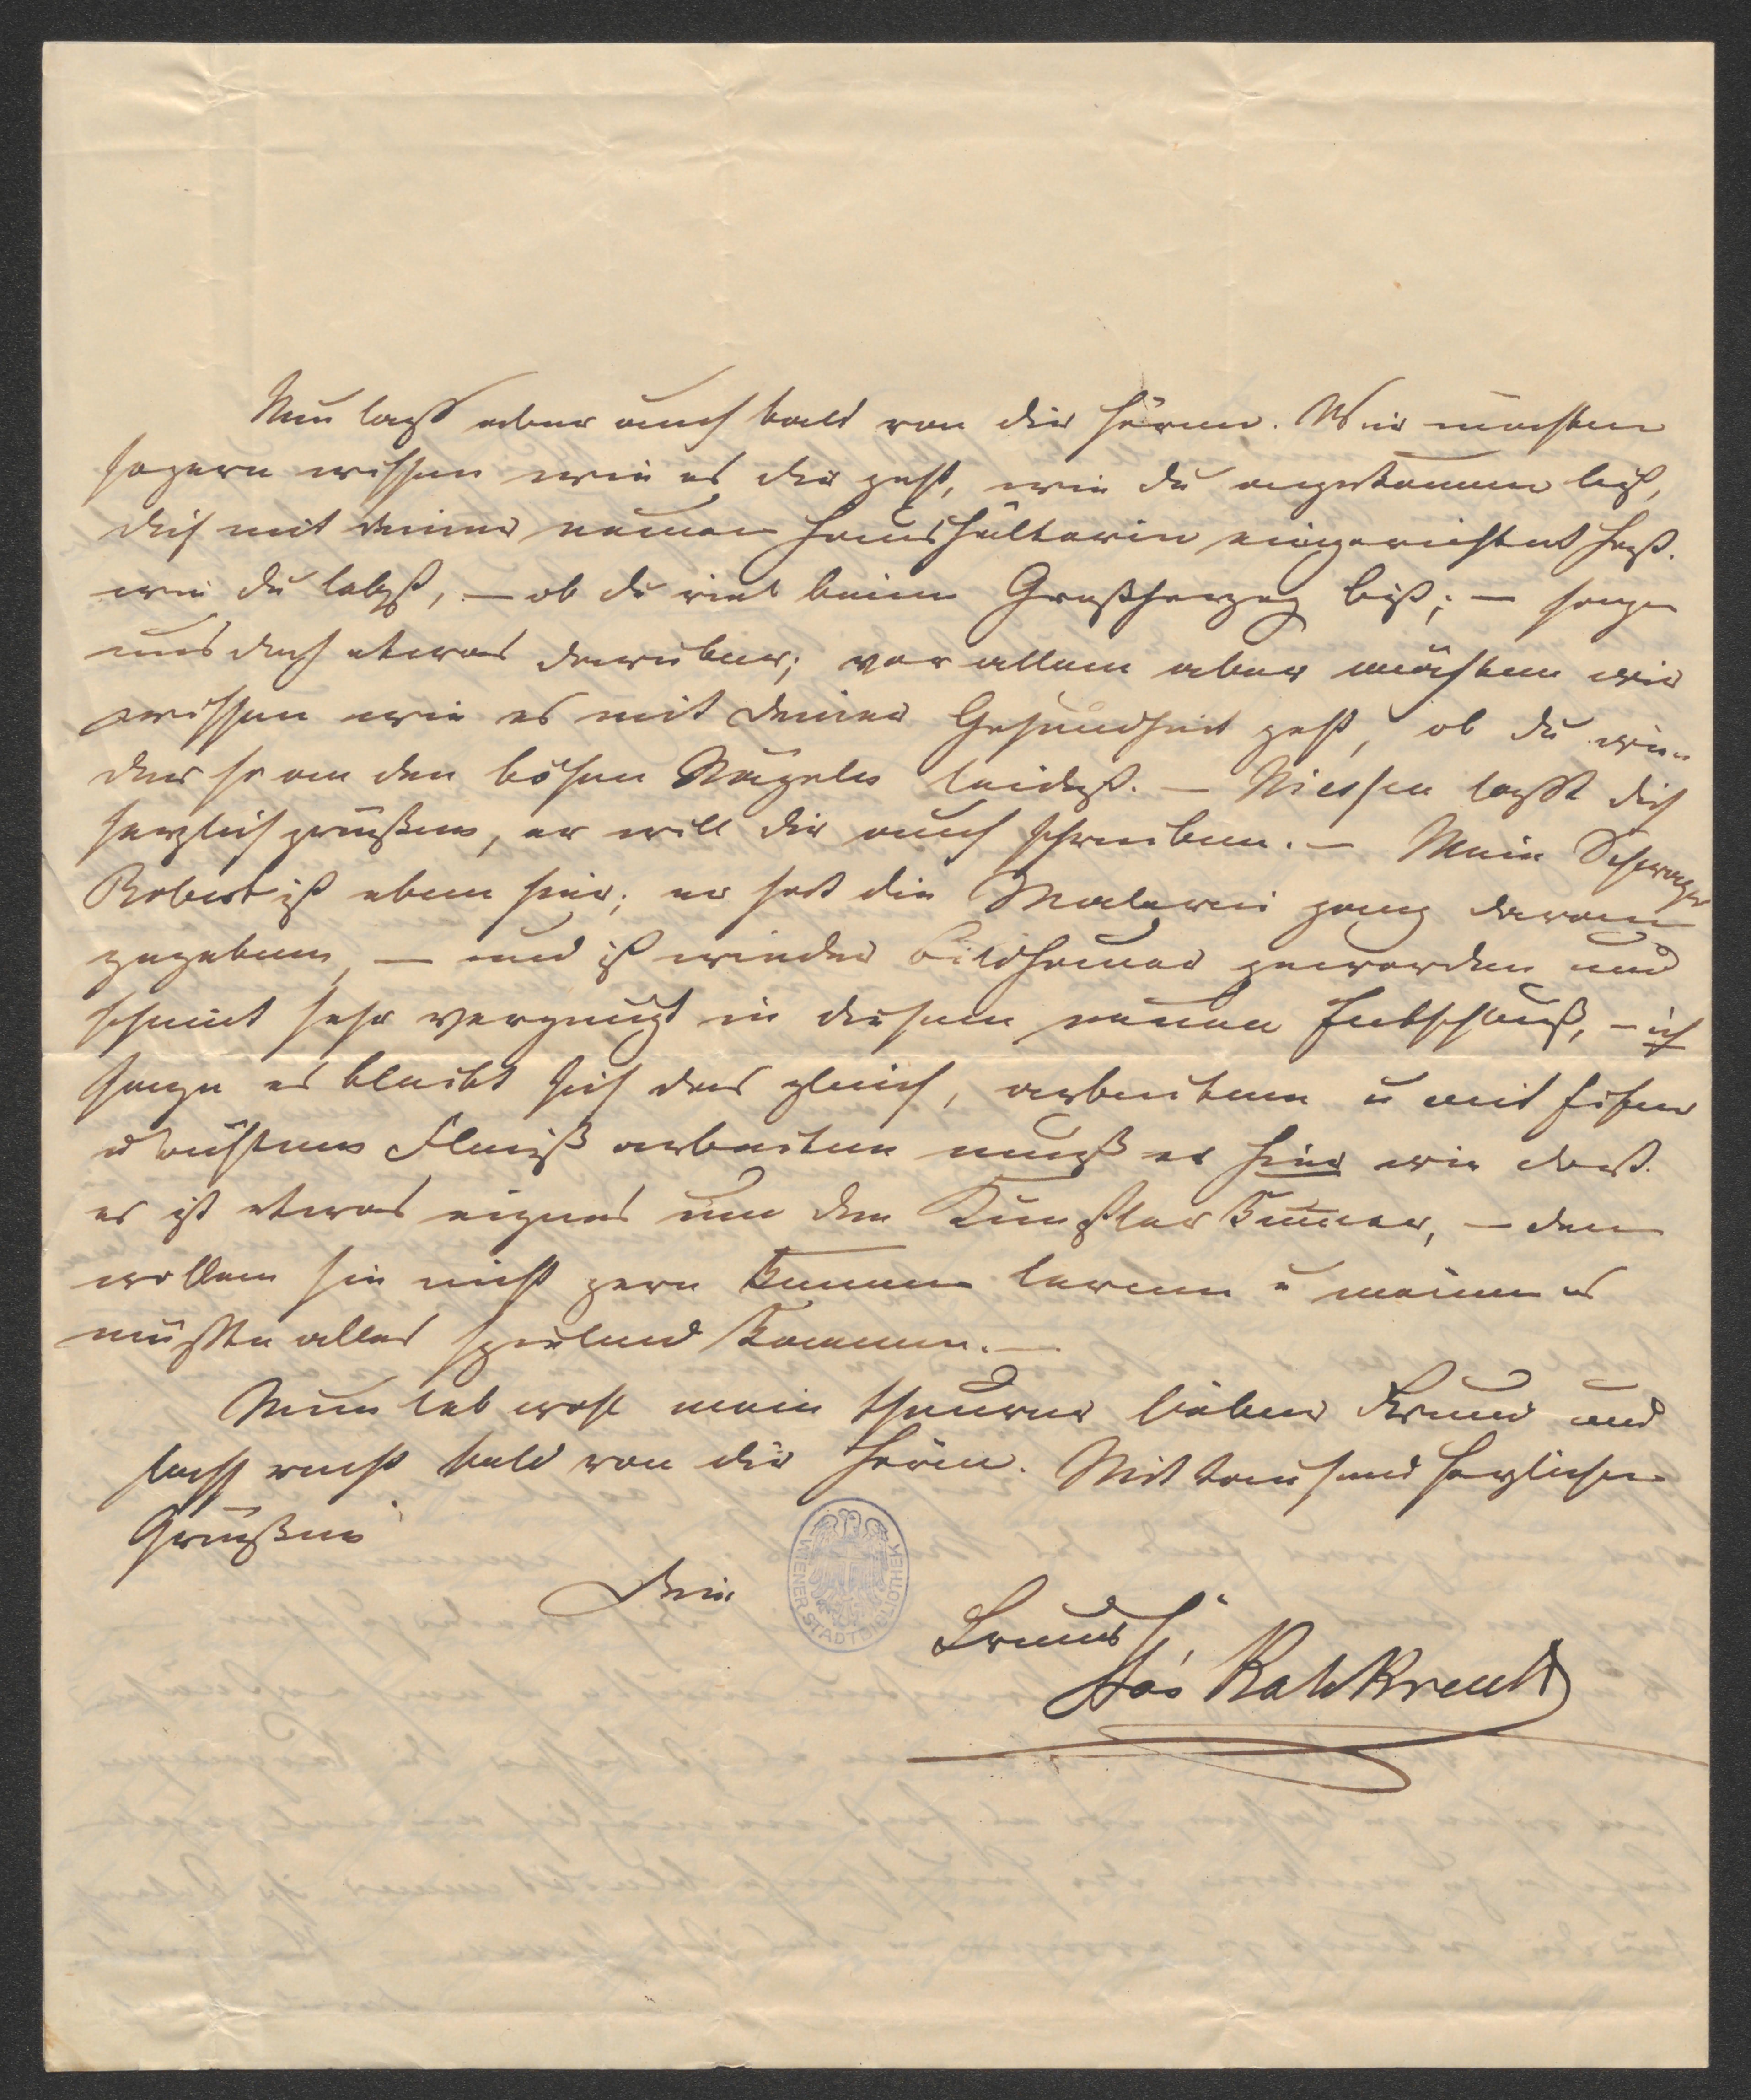 Nun laß aber auch bald von dir hören. Wir möchten
so gern wissen wie es dir geht, wie du angekommen bist,
dich mit deiner neuen Haushälterin eingerichtet hast.
wie du lebst, — ob du viel beim Großherzog bist; — sage
uns doch etwas darüber; vor allem aber möchten wir
wissen wie es mit deiner Gesundheit geht, ob du wie-
der so an den bösen Nägeln leidest. — Niessen lasst dich
herzlich grüßen, er will dir auch schreiben. — Mein Schwager
Robert ist eben hier; er hat die Malerei ganz daran
gegeben, — und ist wieder Bildhauer geworden und
scheint sehr vergnügt in diesem neuen Entschluß, — ich
sage es bleibt sich das gleich, arbeiten u mit
Fleiß arbeiten muß er hier wie dort.
es ist etwas eignes um den Künstler Kummer, — den
wollen sie nicht gern kennen lernen u meinen es
müßte alles spielend kommen. —
Nun leb wohl mein theurer lieber Freund und
lass recht bald von dir hören. Mit tausend herzlichen
Grüßen
Dein
Freund
Stas Kalckreuth
WIENER STADTBIBLIOTHEK